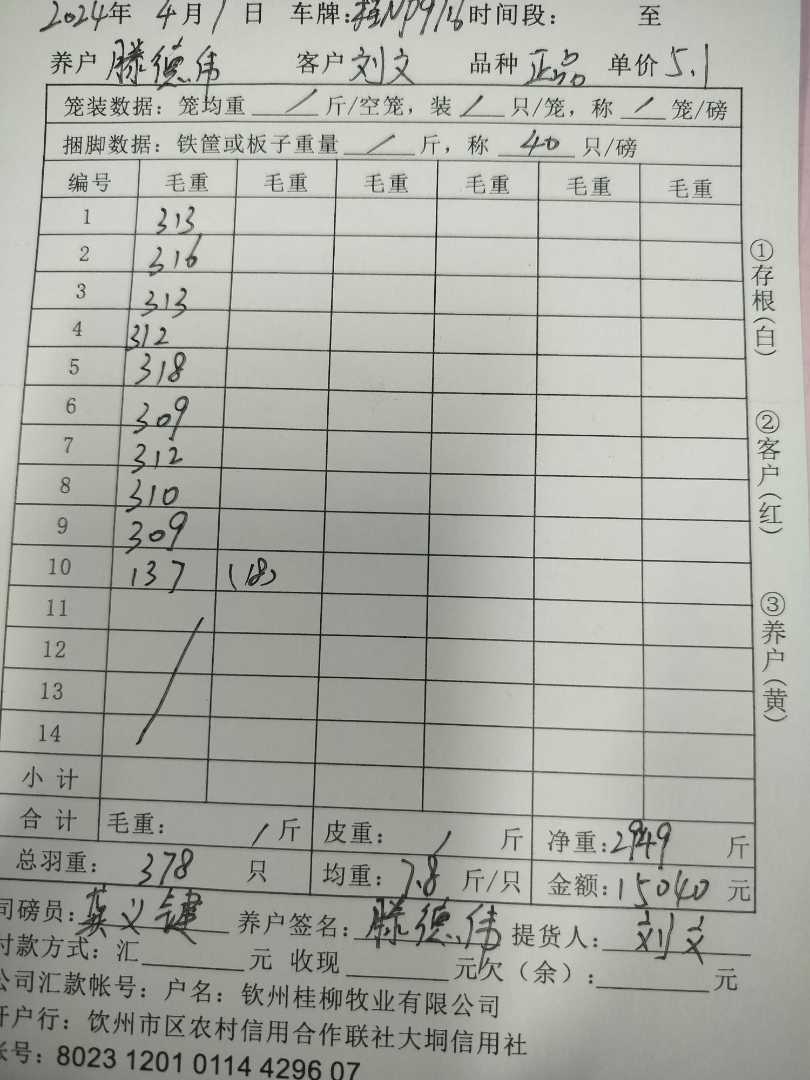 2024年 4月1日 车牌:桂NP9116 时间段: 至
养户 滕德伟 客户 刘文 品种 正品 单价 5.1
笼装数据: 笼均重 / 斤/空笼, 装 / 只/笼, 称 / 笼/磅
捆脚数据: 铁筐或板子重量 / 斤, 称 40 只/磅
编号 毛重 毛重 毛重 毛重 毛重 毛重
1 313
2 316
3 313
4 312
5 318
6 309
7 312
8 310
9 309
10 137 (18)
11
12
13
14
小计
合计 毛重: / 斤 皮重: / 斤 净重: 2949 斤
总羽重: 378 只 均重: 7.8 斤/只 金额: 15040 元
司磅员: 义键 养户签名: 滕德伟 提货人: 刘文
付款方式: 汇 元 收现 元欠(余): 元
公司汇款帐号: 户名: 钦州桂柳牧业有限公司
开户行: 钦州市区农村信用合作联社大垌信用社
帐号: 8023 1201 0114 4296 07
①存根(白)
②客户(红)
③养户(黄)